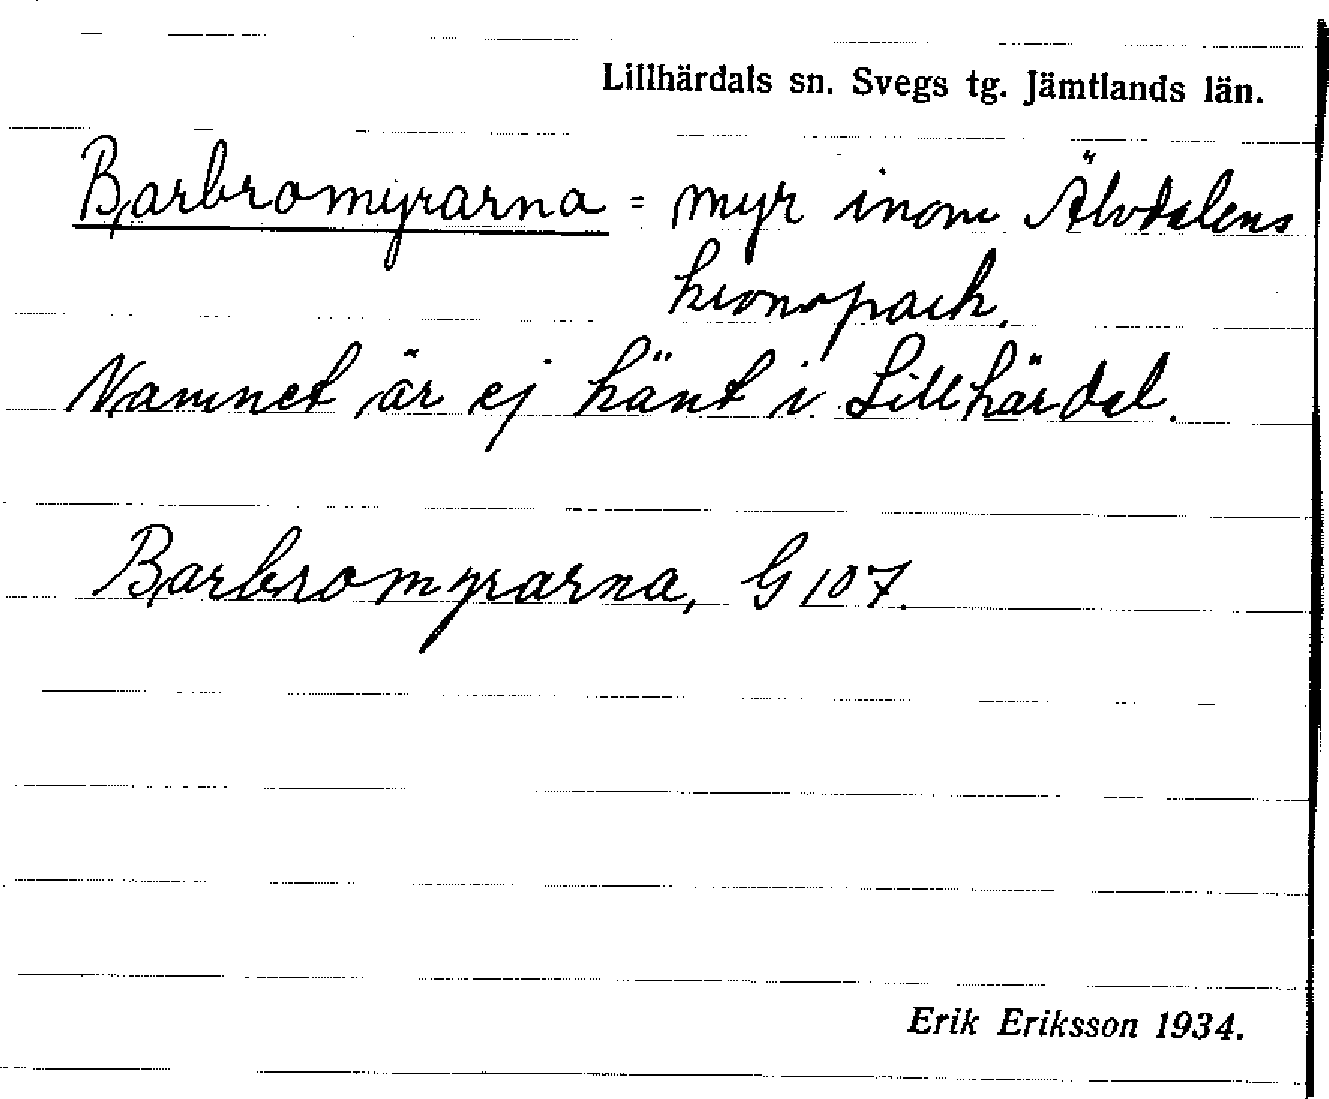 Lillhärdals sn. Svegs tg. Jämtlands län.
Barbromyrarna = myr inom Älvdalens
kronopark.
Namnet är ej känt i Lillhärdal.
Barbromyrarna, G 107.
Erik Eriksson 1934.